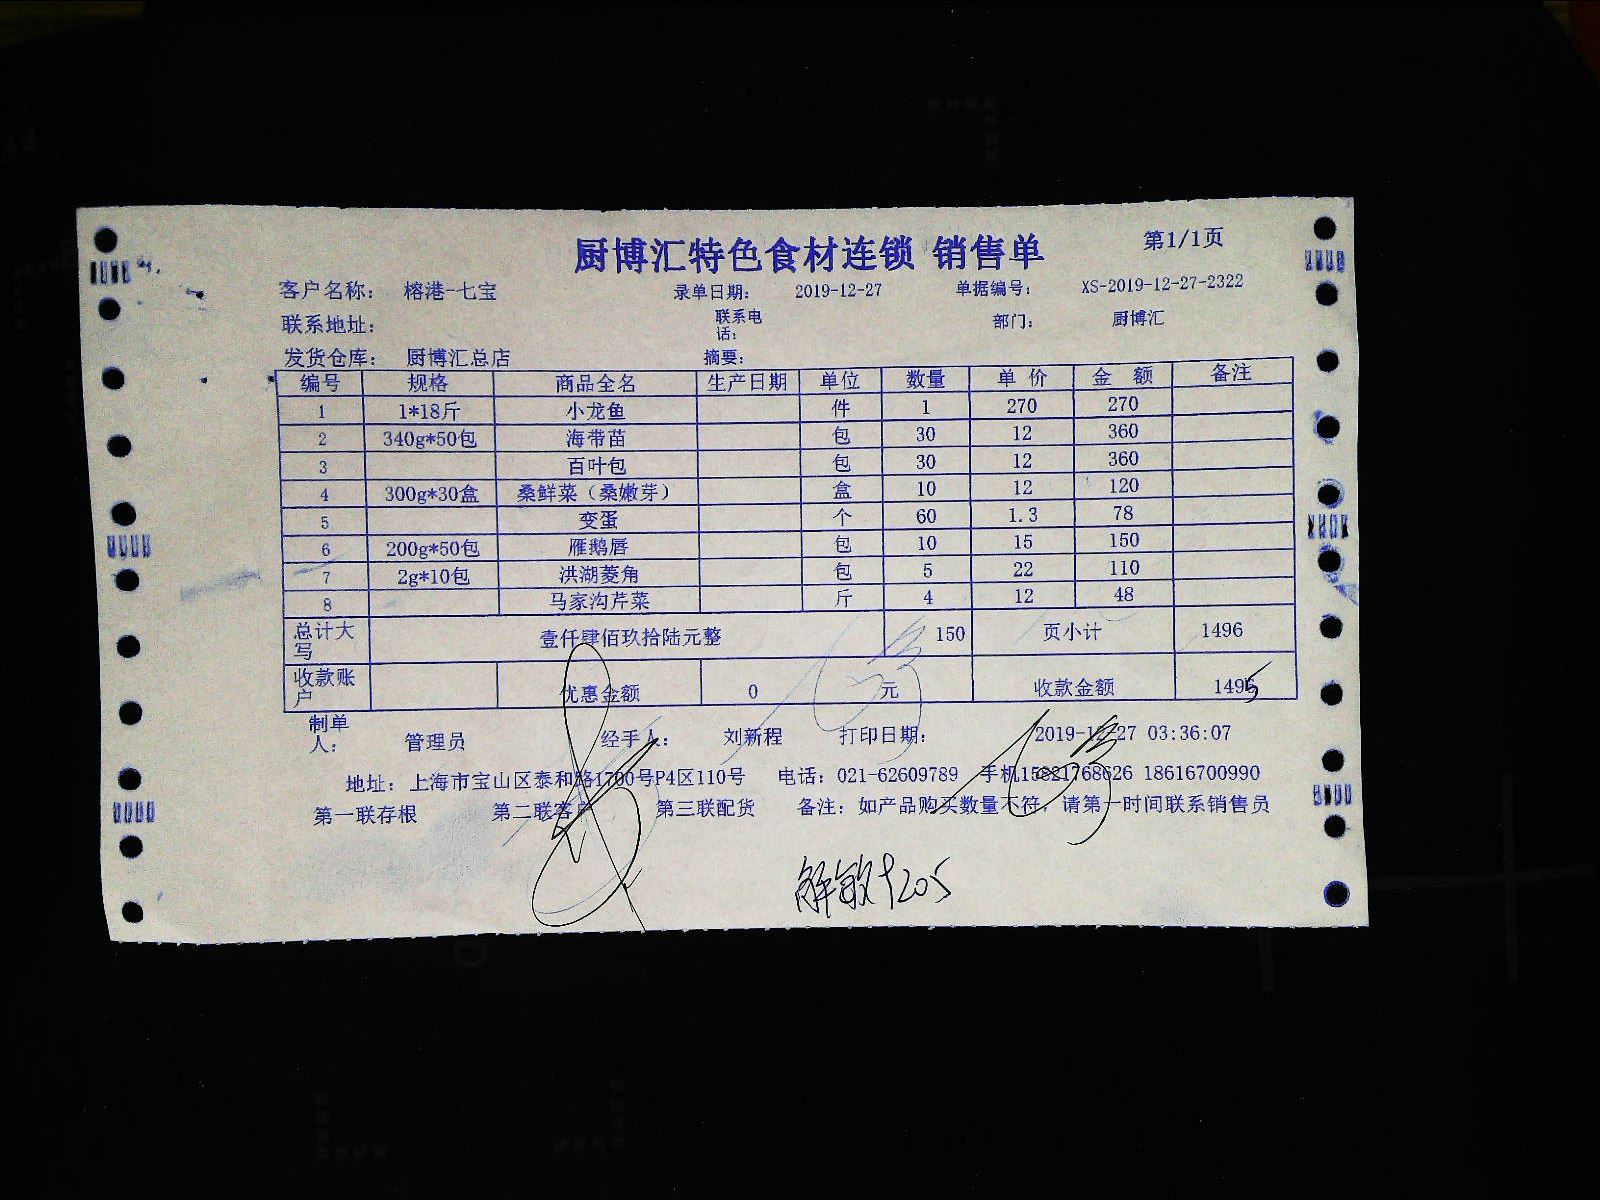 厨博汇特色食材连锁 销售单 第1/1页
客户名称: 榕港-七宝 录单日期: 2019-12-27 单据编号: XS-2019-12-27-2322
联系地址: 联系电话: 部门: 厨博汇
发货仓库: 厨博汇总店 摘要:
编号 规格 商品全名 生产日期 单位 数量 单 价 金 额 备注
1 1*18斤 小龙鱼 件 1 270 270
2 340g*50包 海带苗 包 30 12 360
3 百叶包 包 30 12 360
4 300g*30盒 桑鲜菜（桑嫩芽） 盒 10 12 120
5 变蛋 个 60 1.3 78
6 200g*50包 雁鹅唇 包 10 15 150
7 2g*10包 洪湖菱角 包 5 22 110
8 马家沟芹菜 斤 4 12 48
总计大写 壹仟肆佰玖拾陆元整 150 页小计 1496
收款账户 优惠金额 0 元 收款金额 1495
制单人: 管理员 经手人: 刘新程 打印日期: 2019-12-27 03:36:07
地址: 上海市宝山区泰和路1700号P4区110号 电话: 021-62609789 手机15821768626 18616700990
第一联存根 第二联客户 第三联配货 备注: 如产品购买数量不符，请第一时间联系销售员